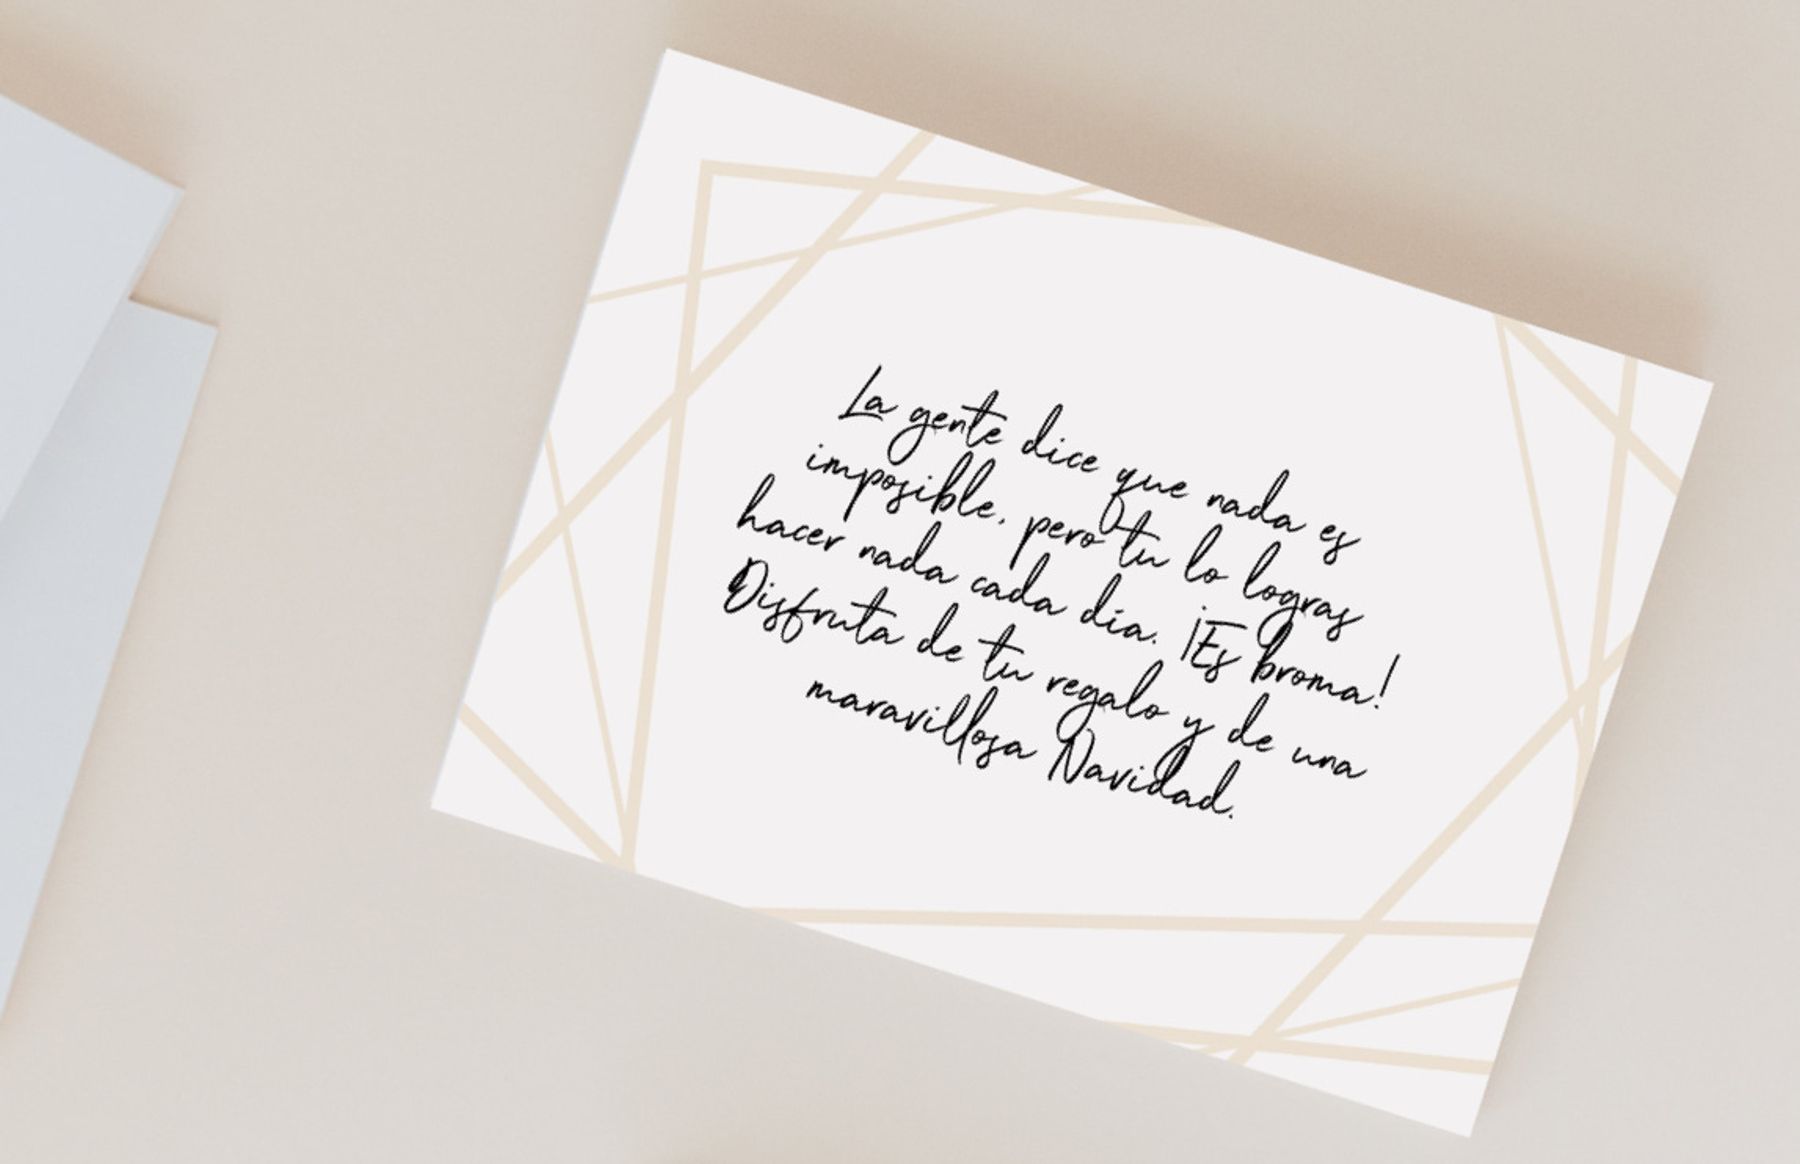 La gente dice que nada es
imposible, pero tu lo logras
hacer nada cada día. ¡Es broma!
Disfruta de tu regalo y de una
maravillosa Navidad.